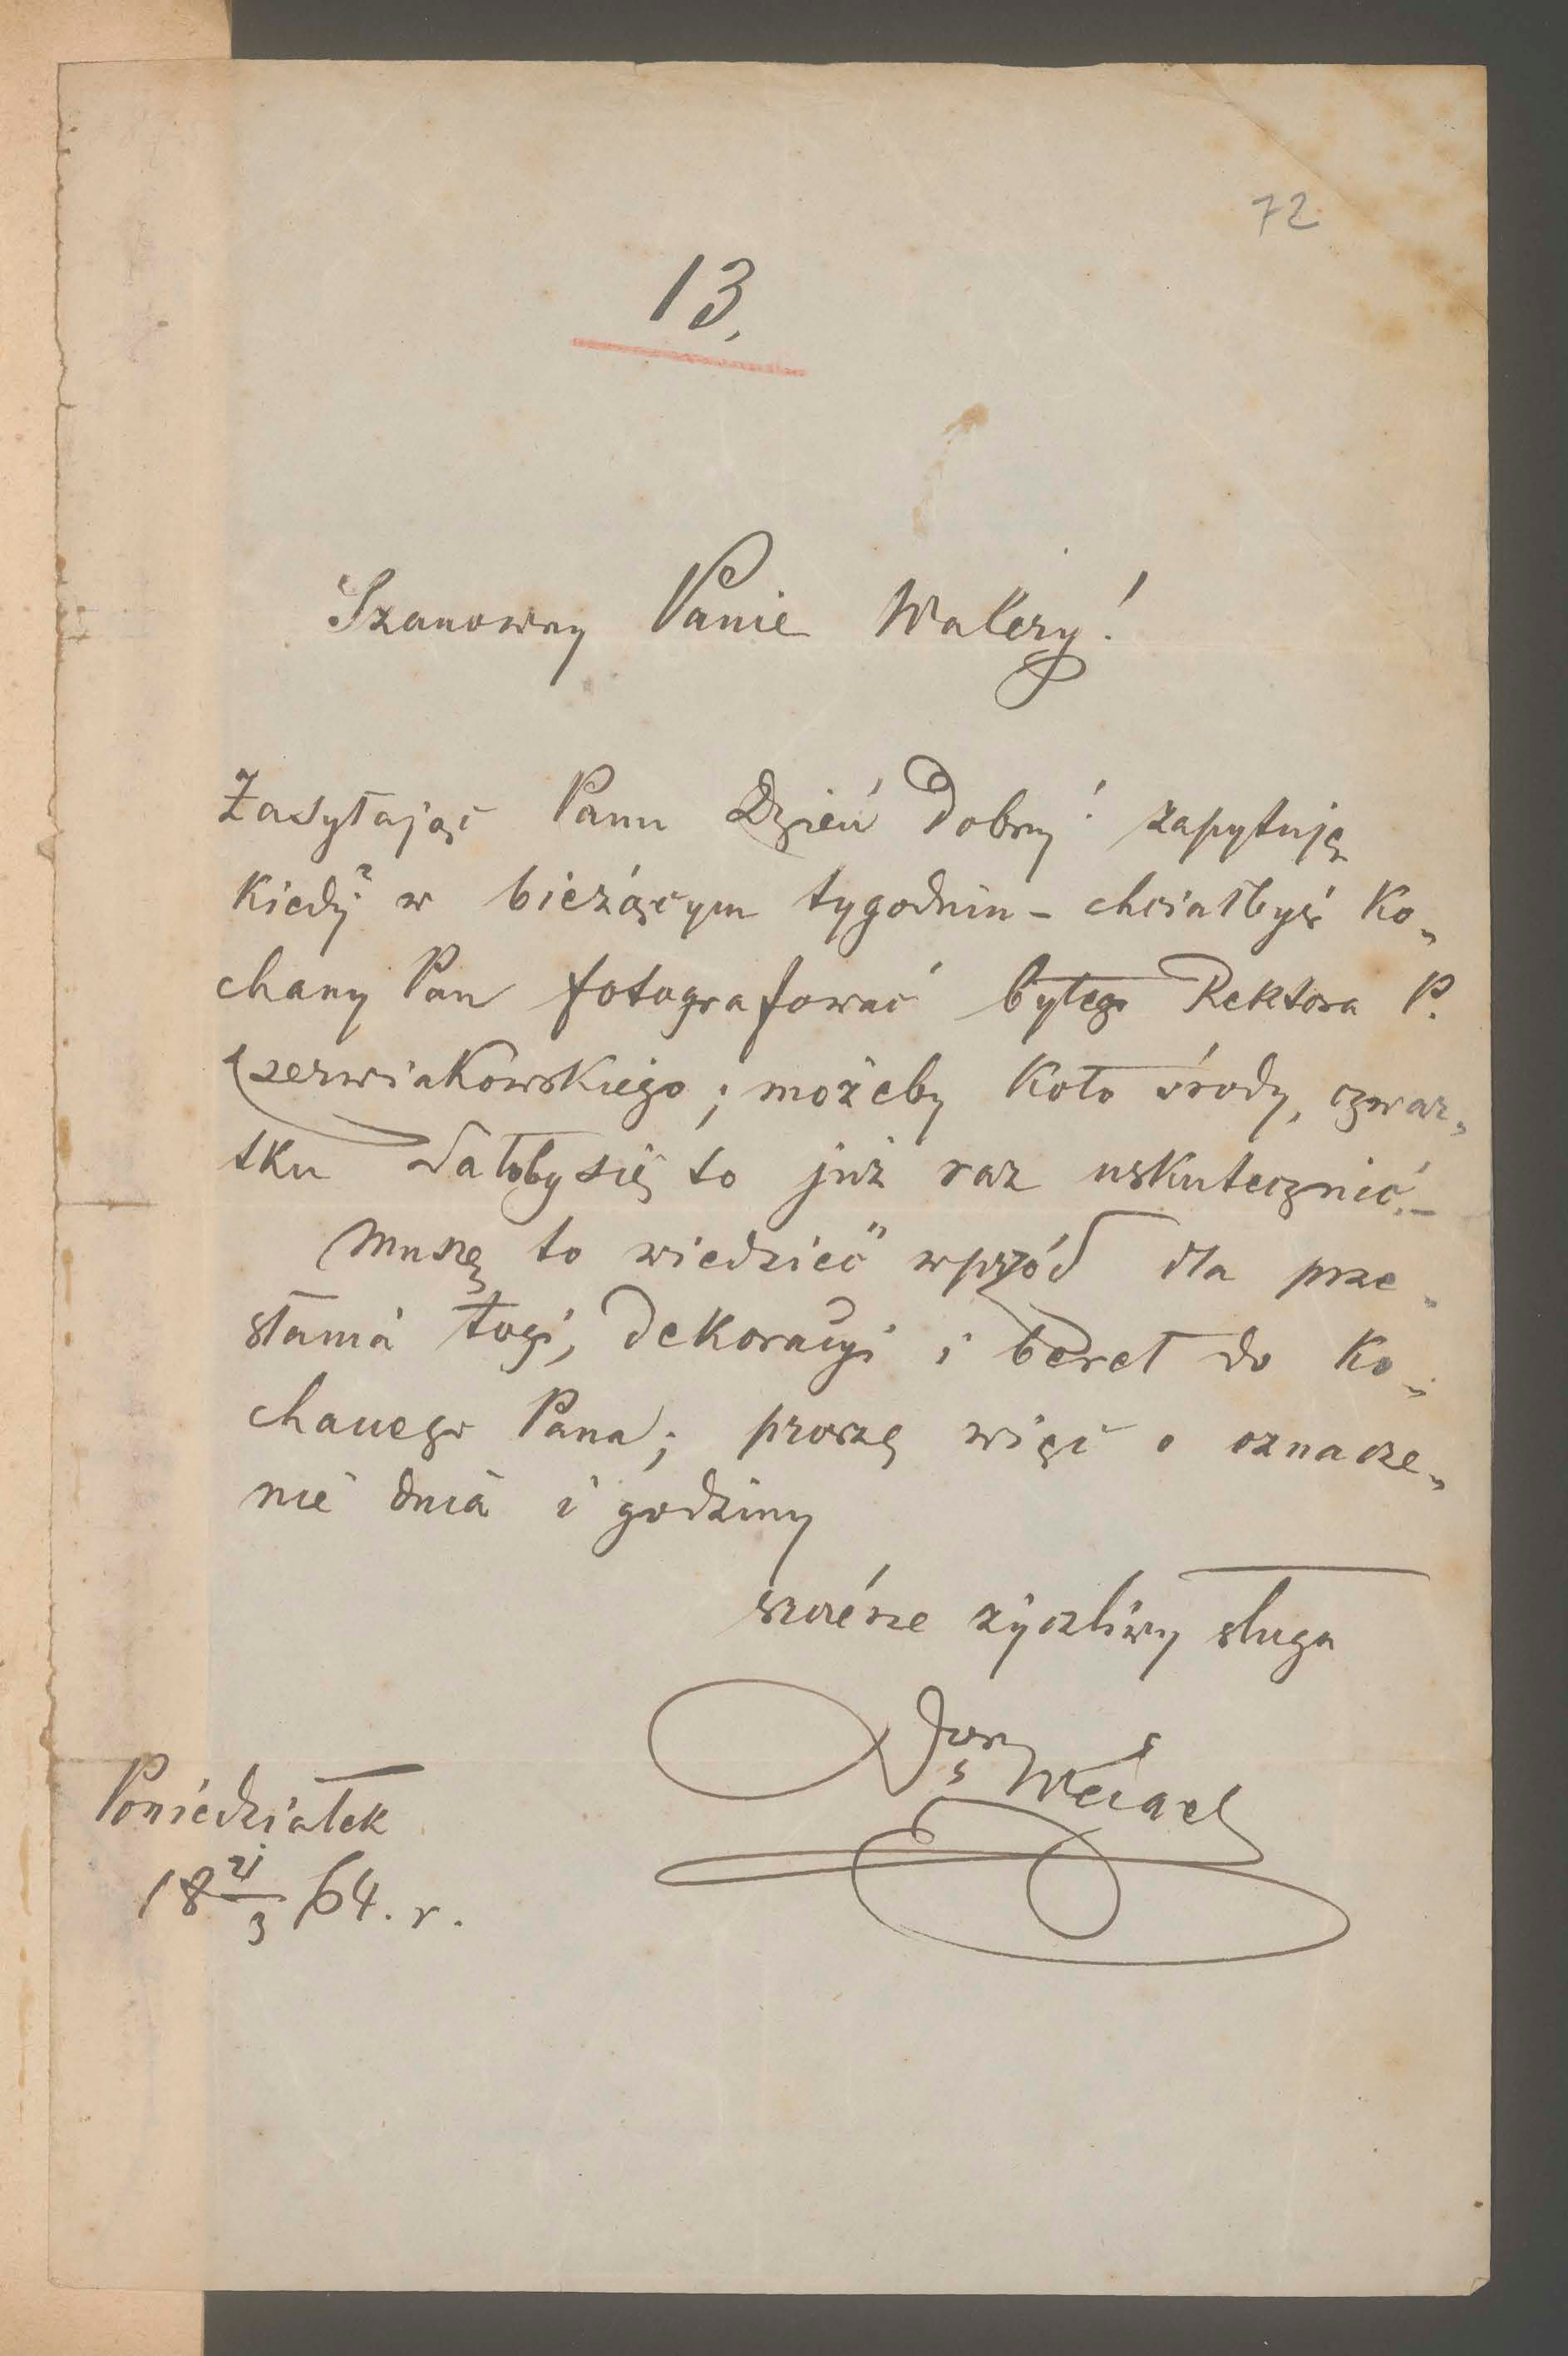 72
13.
Szanowny Panie Walery!
Zasyłając Panu Dzień dobry! zapytuję
kiedy w bieżącym tygodniu – chciałbyś Ko„
chany Pan fotografować byłego Rektora P.
Czerwiakowskiego; możeby koło środy, czwar„
tku dałoby się to już raz uskutecznić. –
Muszę to wiedzieć wprzód dla prze„
słania togi, dekoracyi i beret do Ko„
chanego Pana; proszę więc o oznacze„
nie dnia i godziny
szczérze życzliwy sługa
Weigel
Poniedziałek
18 21/3 64. r.